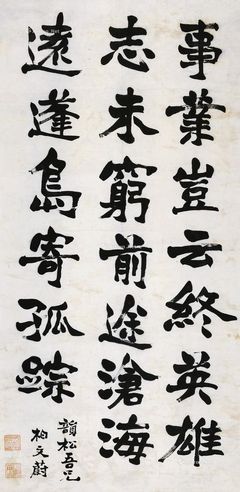 事業豈云終英雄
志未窮前途滄海
遠蓬島寄孤踪
韻松吾兄
柏文蔚